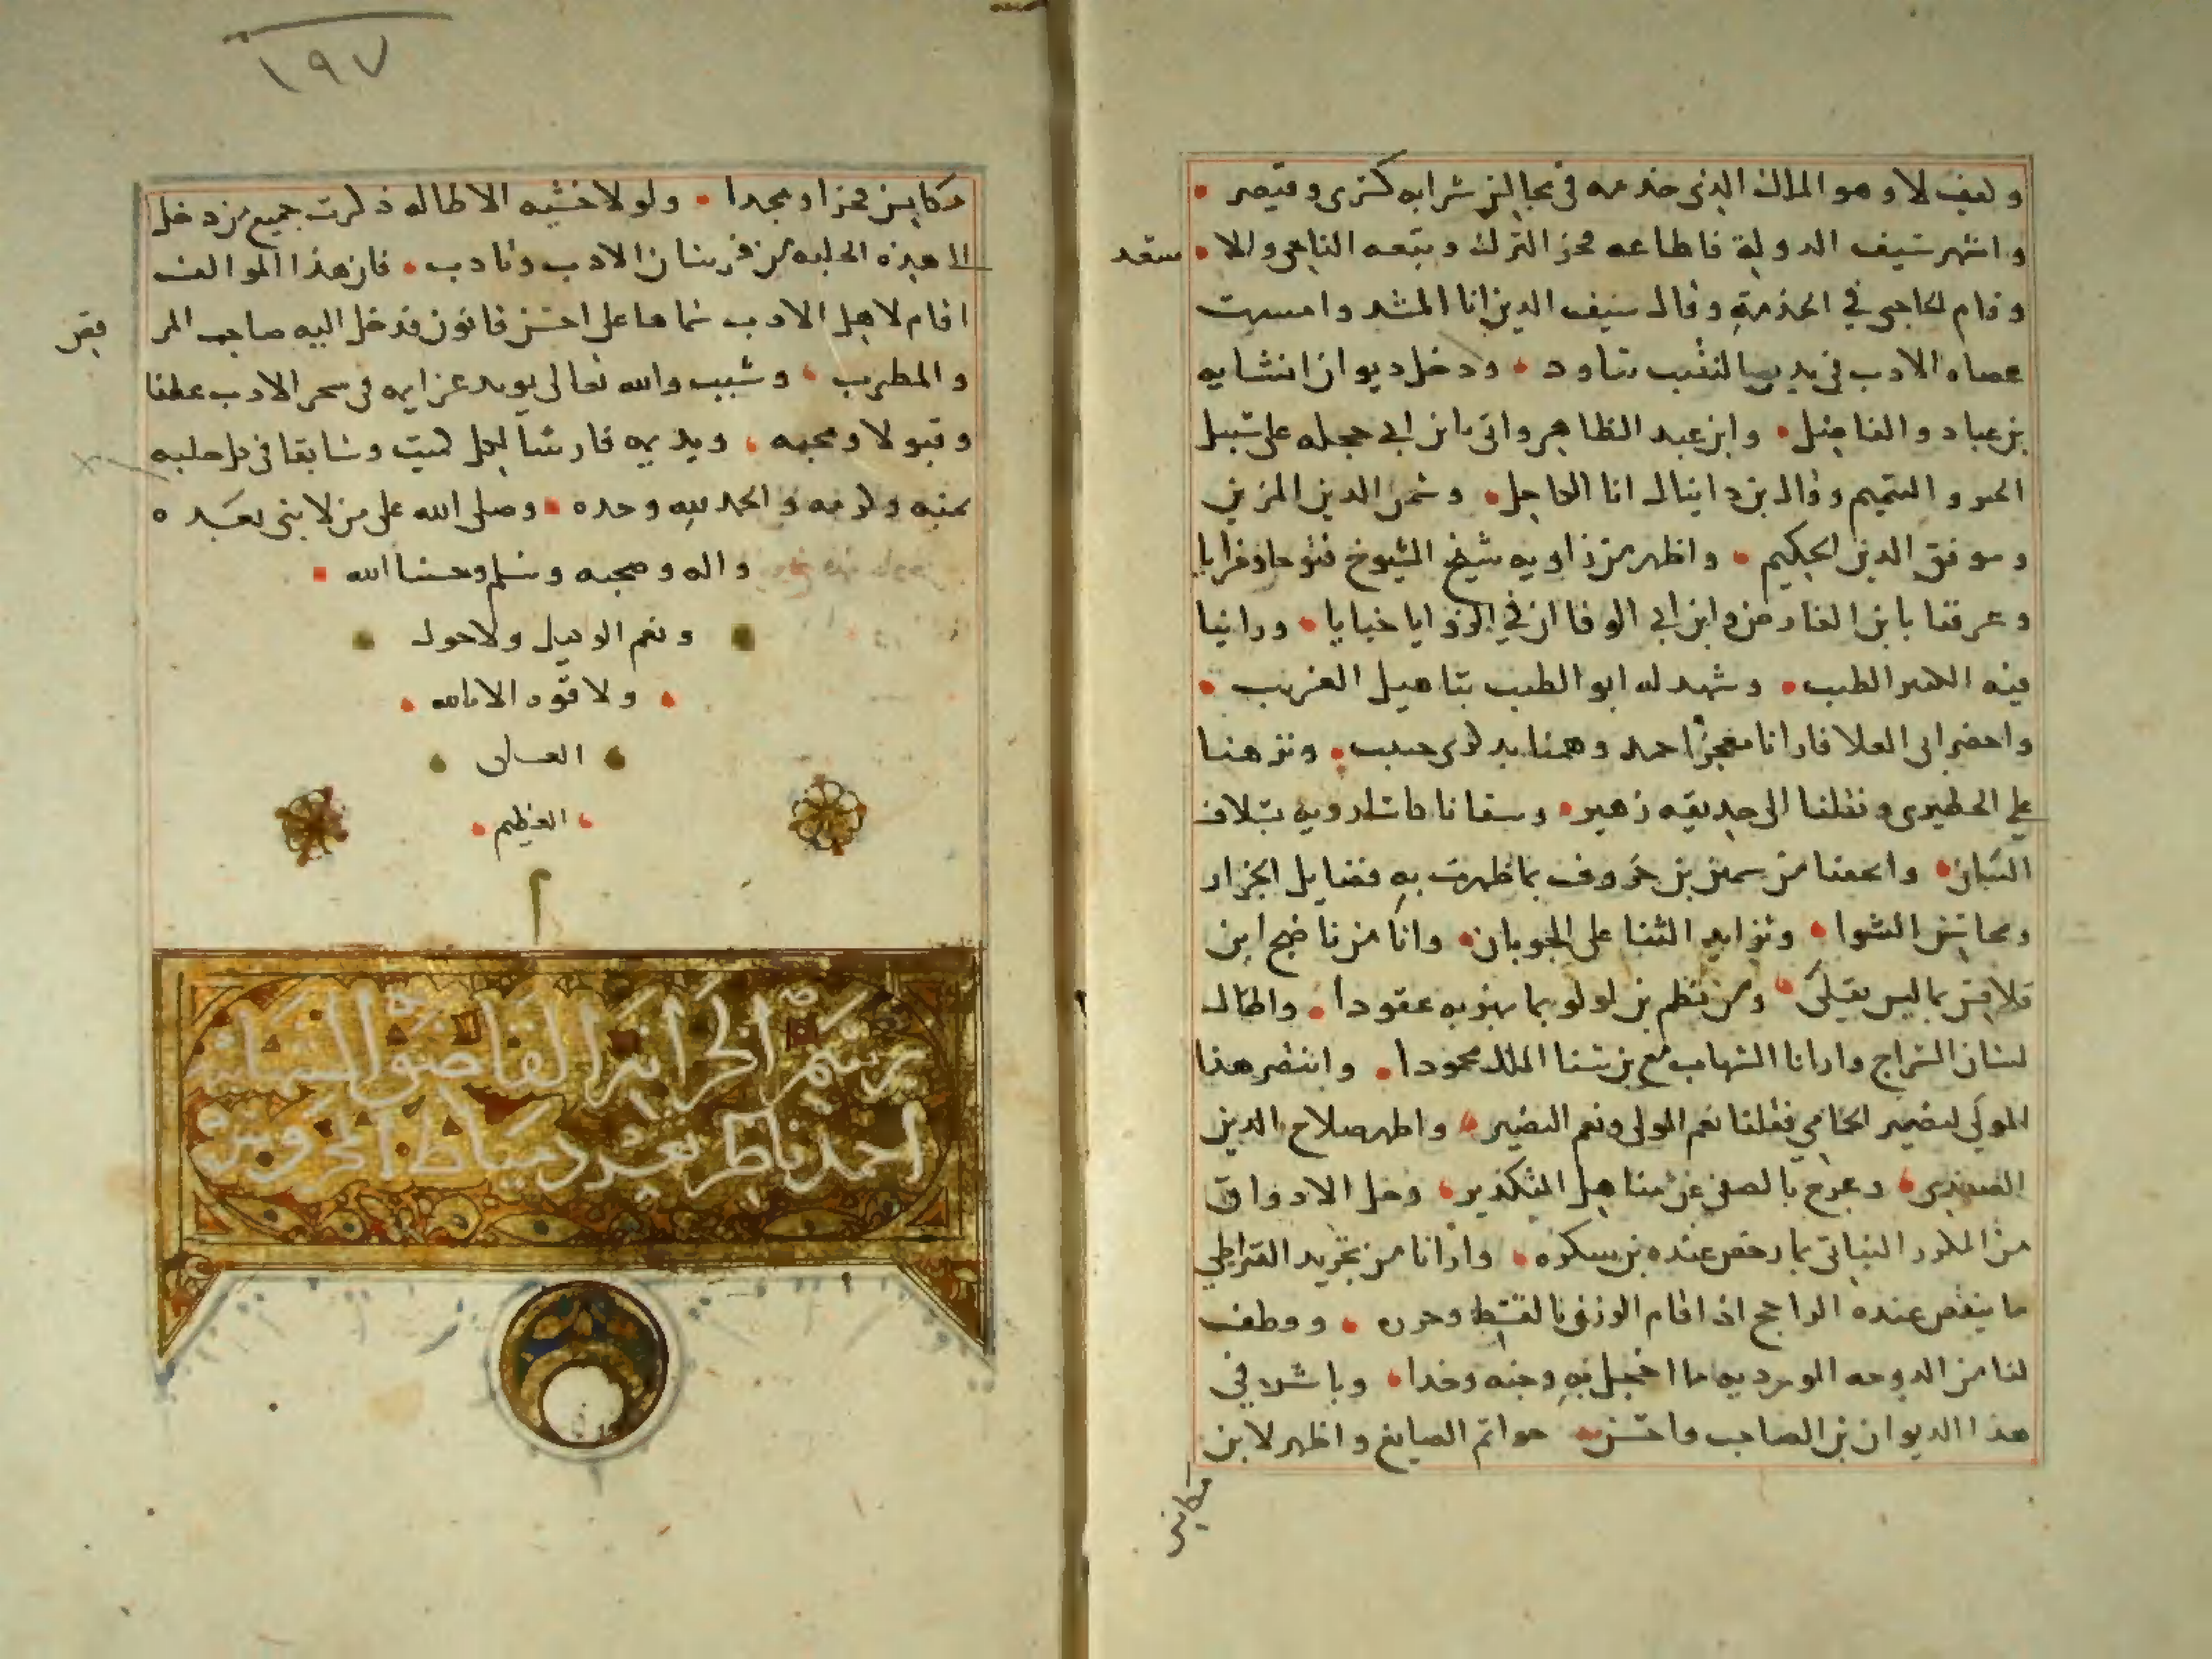 وكيف لا وهو الملك الذي خدمه في مجالس شرابه كسرى وقيصر
واشهر سيف الدولة فاطاعه محرز الترك وتبعه الناجي والا سعد
وقام الحاجبي في الخدمة وقال سيف الدين انا المشد وامسيت
عصاه الادب في يد يها لنقيب تتاود ودخل ديوان انشايه
بن عباد والفاضل وابن عبد الظاهر واتى بابن ابي حجله على سبيل
وقال بن دانيال انا الكاحل وشمس الدين المزين
وموفق الدين الحكيم واظهر من زاويه شيخ الشيوخ فتوحا ومزايا
وعرفنا بابن الفارض وابن ابي الوفا ان في الزوايا خبايا وراينا
فيه الطيب وشهد له ابو الطيب بتاهيل الغريب
واحضر ابي العلا فارانا معجز احمد وهمنا بذكرى حبيب ونزهنا
علي الحظيري ونقلنا الى حديقه زهير وسقانا بسلاف
التبان واتحفنا من سمين بن خروف بما ظهرت به فضايل الجزار
ومحاسن الشوا وتزايد الثنا على الجوبان وانا من ناضج ابن
قلاقس بما ليس يقلى ومن نظم بن لولو بما يهزو به عقودا واطال
لسان السراج وارانا الشهاب مع بن سنا الملك محمودا وانتصر هذا
المولى لنصير الحمامي فقلنا نعم المولى ونعم النصير واظهر صلاح الدين
الصفدي وعرج بالصفي عن مناهل التكدير وحل الاذواق
من المكرر النباتي بما رخص عنده بن سكره وارانا من تحرير القيراطي
ما ينقص عنده الراجح اذ اقام الوزن بالقسط وحرره وقطف
لنا من الدوحه الورديه ما اخجل به وجنه وخدا وباشر في
هذا الديوان بن الصاحب واحسن خواتم الصايغ واظهر لابن
مكانس
مكانس فخرا ومجدا ولولا خشيه الاطاله ذكرت جميع من دخل
الى هذه الحلبه من فرسان الادب وتادب فان هذا المؤلف
اقام لاهل الادب سماعا على احسن قانون فدخل اليه صاحب المر قص
والمطرب وشبب والله تعالى يويد عزايمه في سحر الادب عطفا
وقبولا ومحبه ويديمه فارسا لكل كميت وسابقا في كل حلبه
بمنه وكرمه والحمد لله وحده وصلى الله على من لا نبي بعده
واله وصحبه وسلم وحسبنا الله
ونعم الوكيل ولا حول
ولا قوه الا بالله
العلي
العظيم
برسم الخزانة القاضوية الشهابية
احمد ناظر ثغر دمياط المحروس
١٩٧